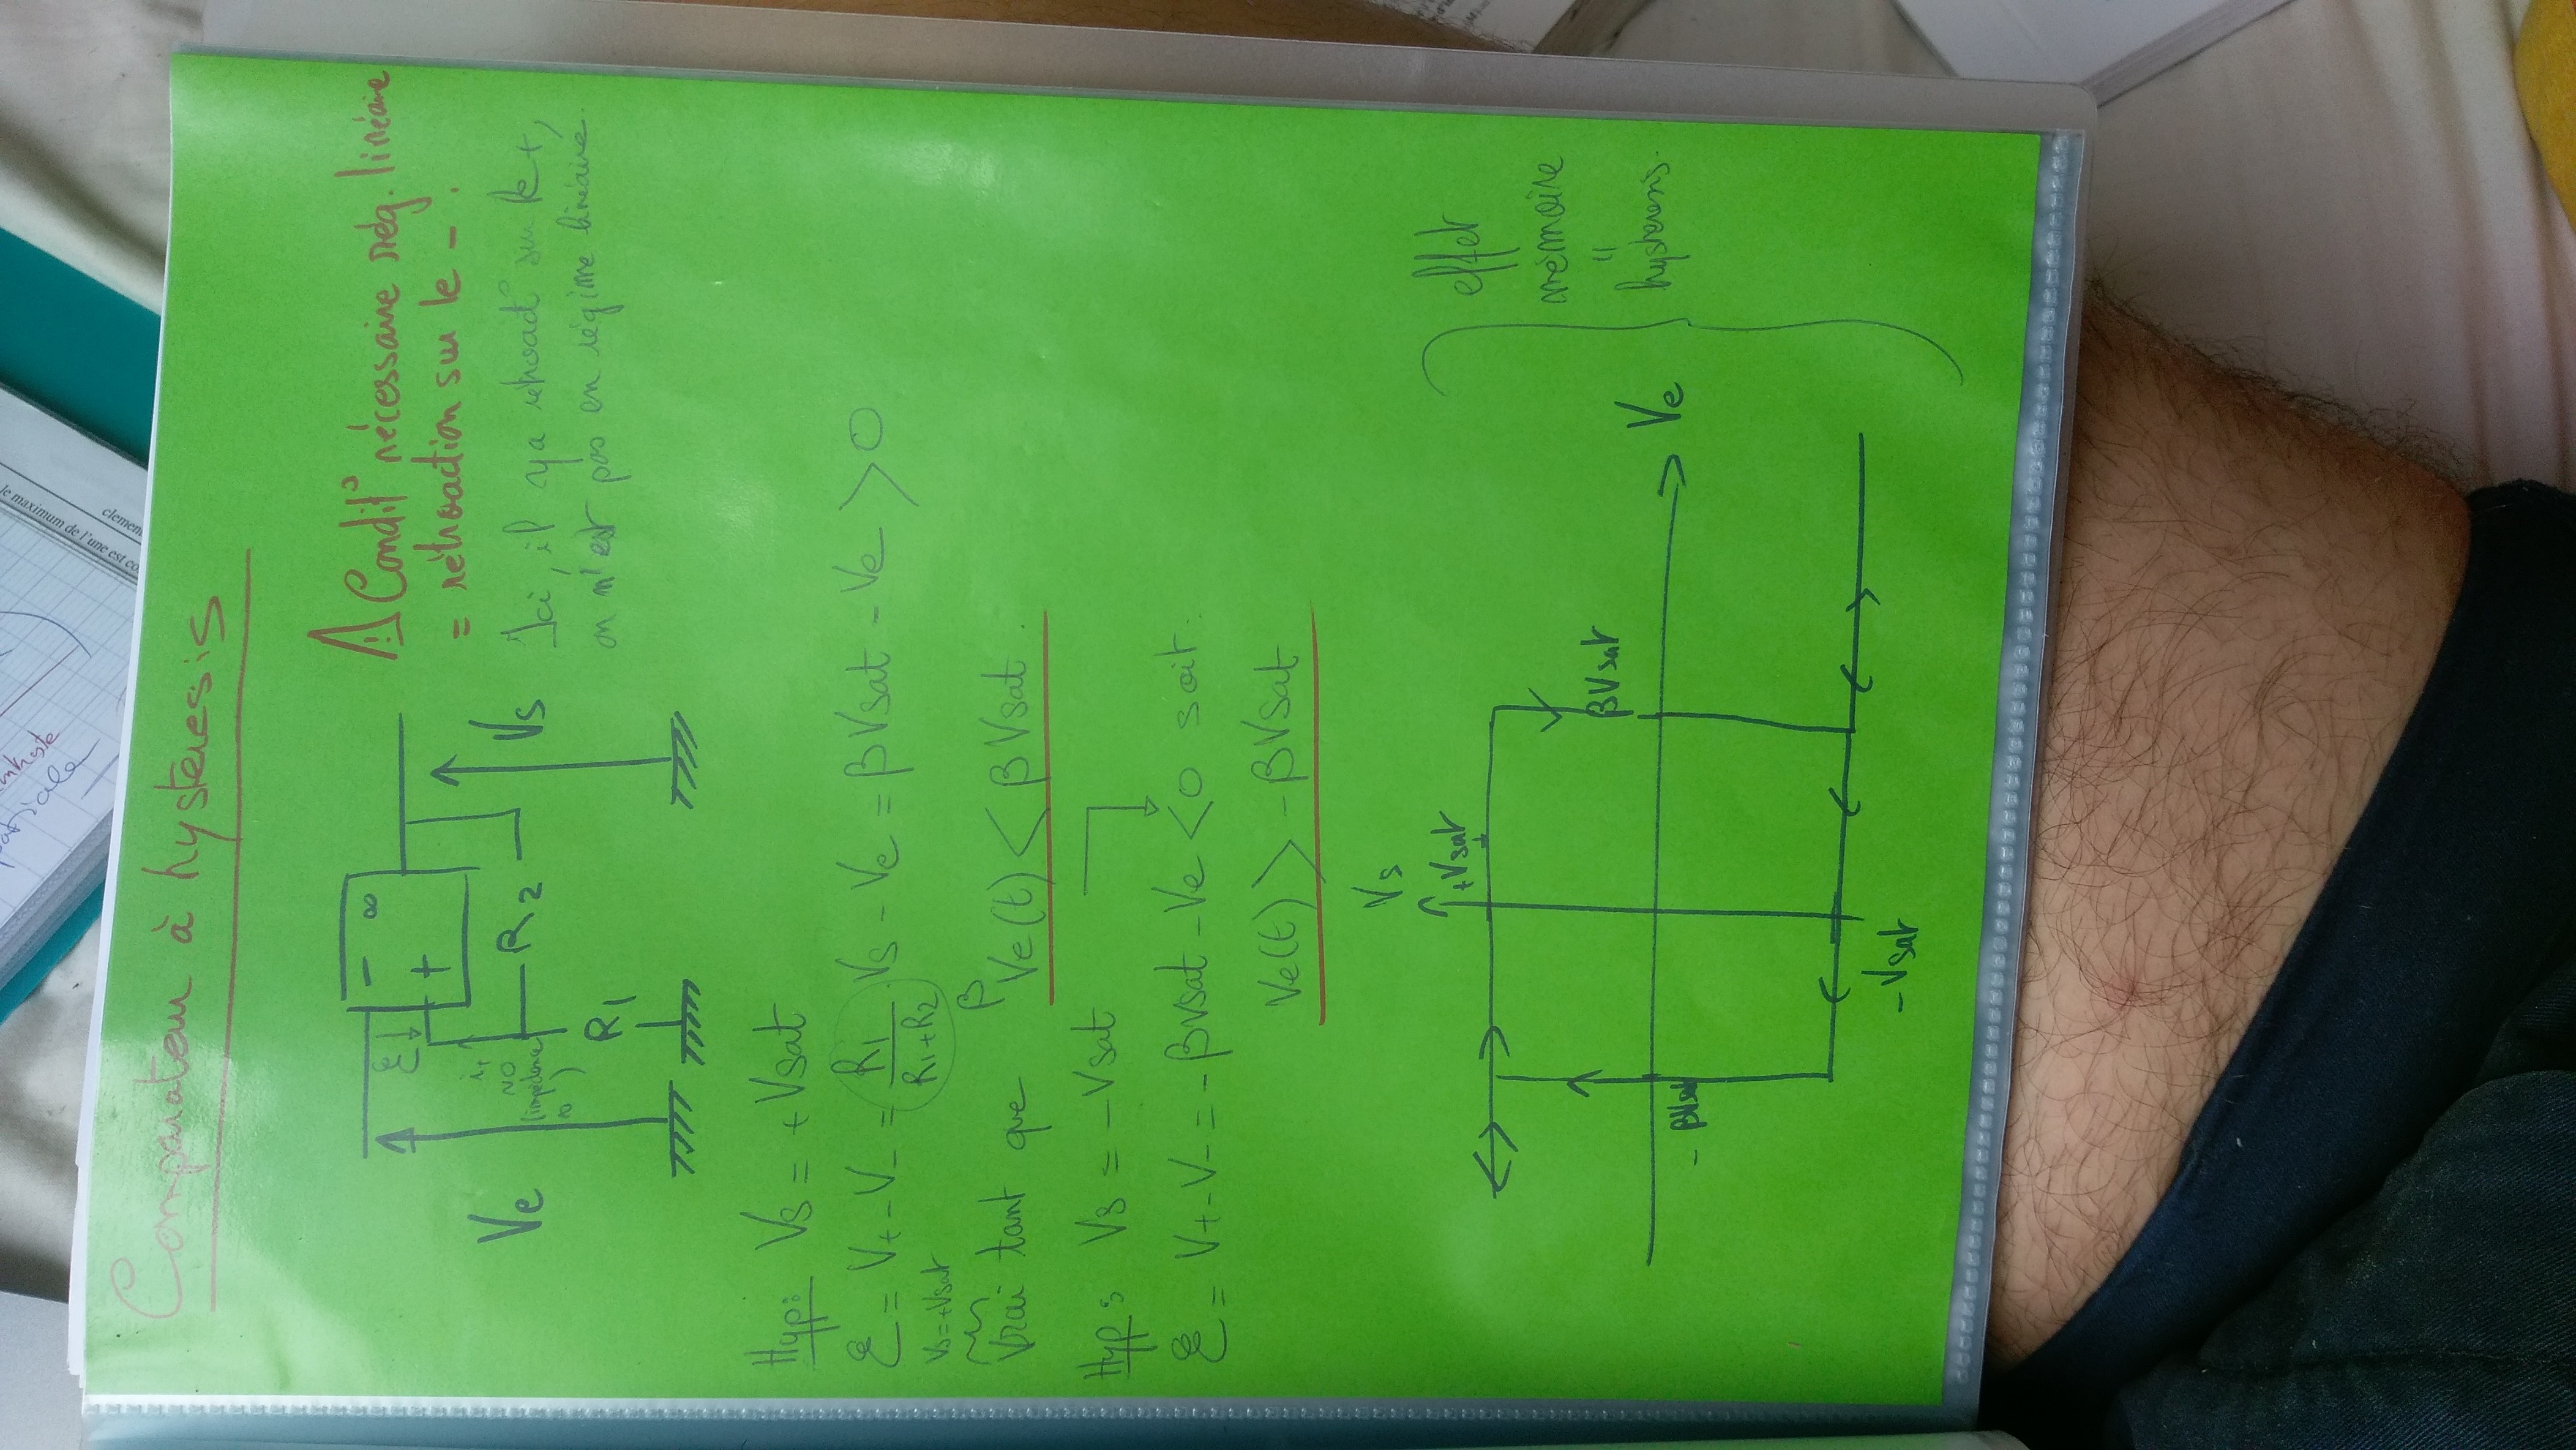 Comparateur à hystérésis
⚠ Condit° nécessaire rég. linéaire
= rétroaction sur le -.
Ici, il y a rétroact° sur le +,
on n'est pas en régime linéaire.
- ∞
+
ε
i+
≈0
(impédance
∞)
R2
R1
Ve
Vs
Hyp: Vs = +Vsat
ε = V+ - V- = R1/(R1+R2) . Vs - Ve = βVsat - Ve > 0
Vs=+Vsat
β
Vrai tant que Ve(t) < βVsat.
Hyp: Vs = -Vsat
ε = V+ - V- = -βVsat - Ve < 0 soit:
Ve(t) > -βVsat
Vs
+Vsat
βVsat
Ve
-βVsat
-Vsat
effet
mémoire
"
hystérésis.
le maximum de l'une est co
clemen